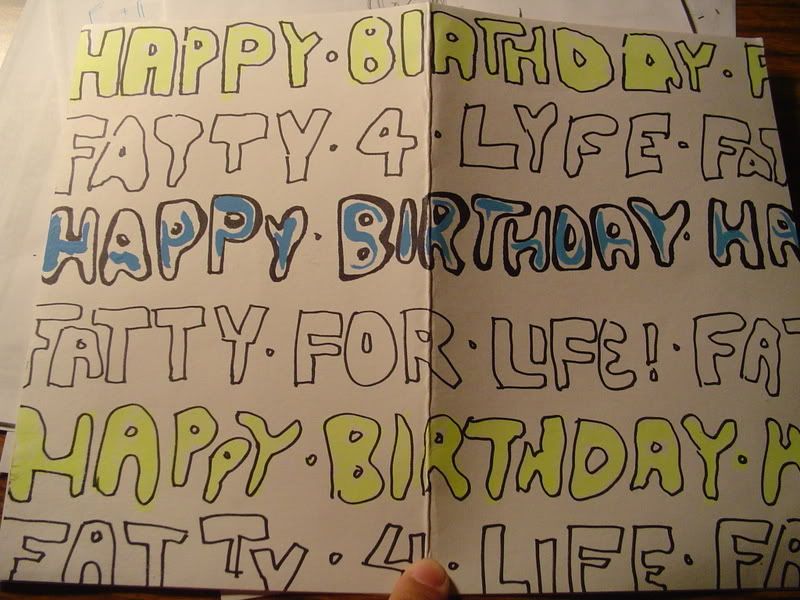 HAPPY · BIRTHDAY ·
FATTY · 4 · LYFE · FAT
HAPPY · BIRTHDAY · HA
FATTY · FOR · LIFE! · FAT
HAPPY · BIRTHDAY · H
FATTY · 4 · LIFE · FA